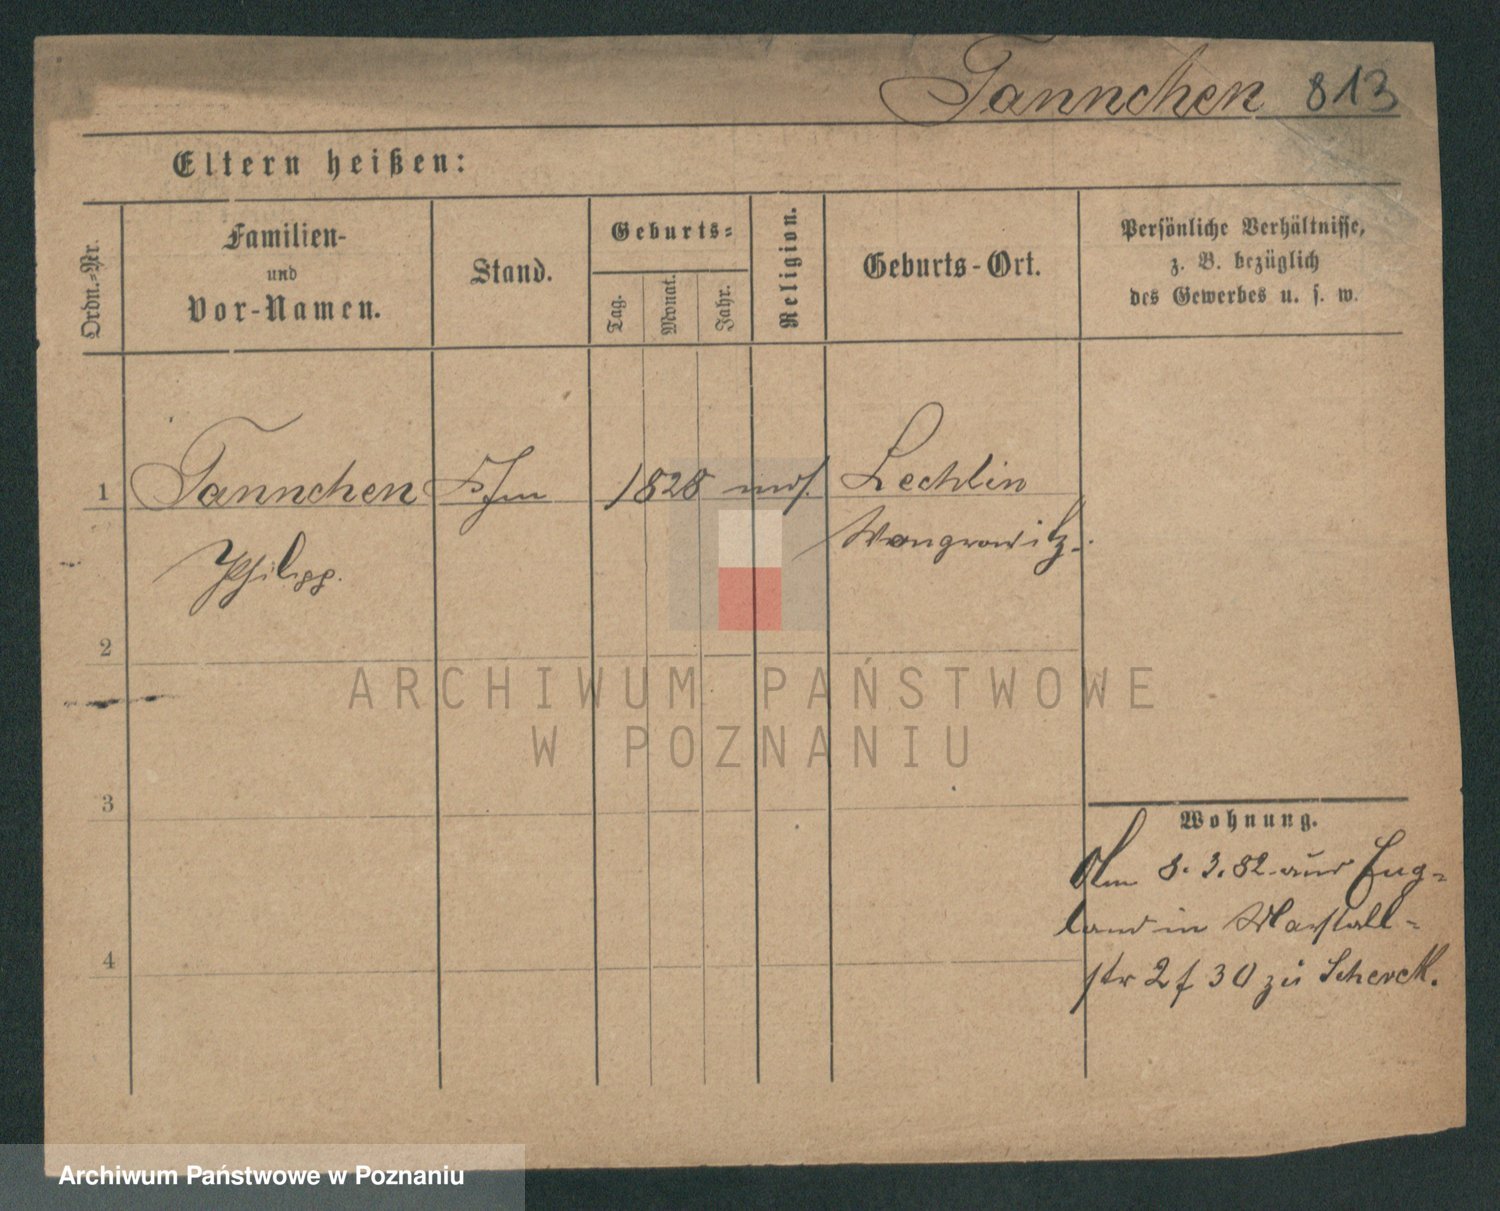 Tannchen 813
Eltern heißen:
Ordn.-Nr.
Familien-
und
Vor-Namen.
Stand.
Geburts-
Tag.
Monat.
Jahr.
Religion.
Geburts-Ort.
Persönliche Verhältnisse,
z. B. bezüglich
des Gewerbes u. s. w.
1 Tannchen Kfm 1828 mos. Lechlin
Philipp. Wongrowitz.
2
ARCHIWUM PAŃSTWOWE
W POZNANIU
3
Wohnung.
Am 8.3.82 aus Eng-
land in Marstall-
str 2 f 30 zu Scherck.
4
Archiwum Państwowe w Poznaniu